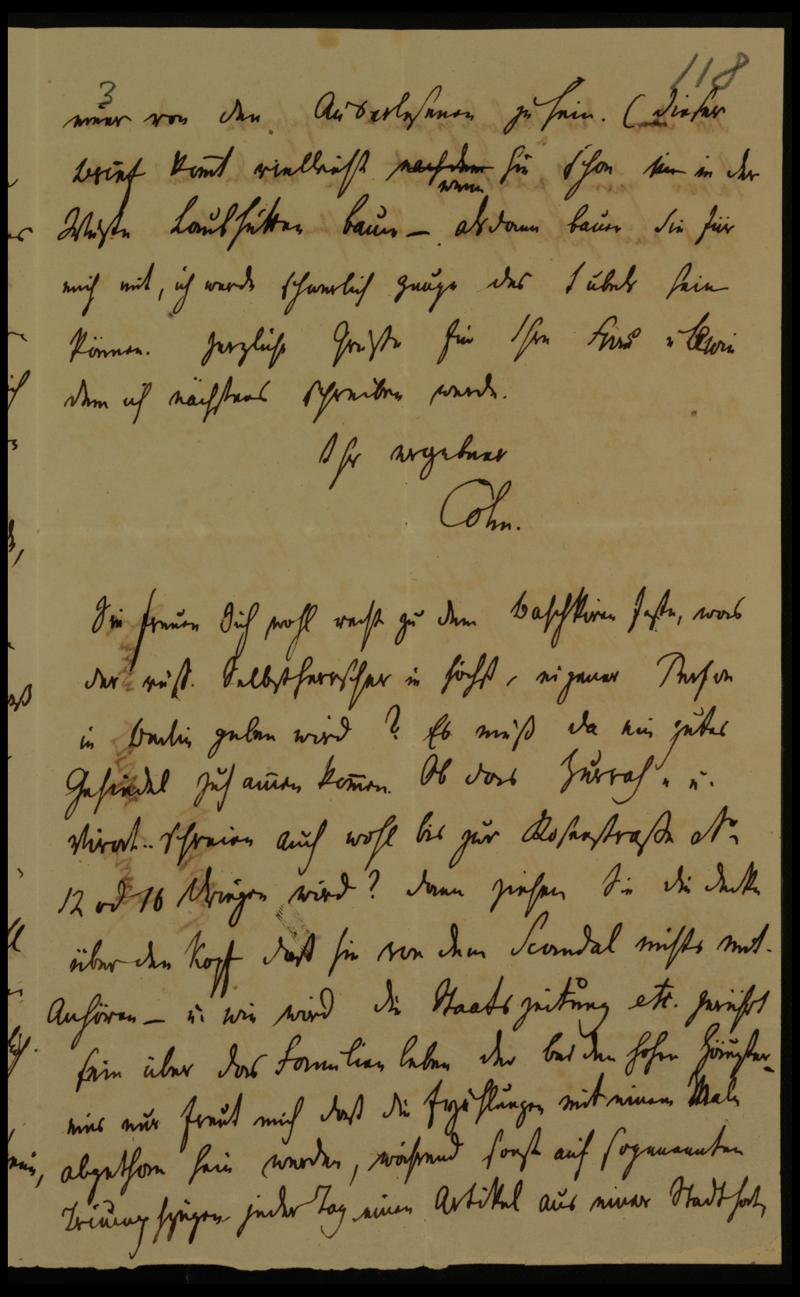 118
3
einer von den Auserlesenen zu sein. (Dieser
Brief kom̅t vielleicht nachdem wenn Sie schon in der
Wüste Laubhütten bauen — alsdann bauen Sie für
mich mit, ich werde schwerlich Zeuge des Jubels sein
können. Herzliche Grüße für Ihre Frau u
dem ich nächstens schreiben werde.
Ihr ergebener
Cohn.
Sie freuen Sich wohl recht zu dem Baschkiren Feste, was
der russ. Selbstherrscher in höchst eigener Person
in Berlin geben wird? Es muß da ein gutes
Gesindel zusam̅en kom̅en. Ob das Hurrah " u.
Vivat " schreien auch wohl bis zur Rosenstraße No
12 od 16 dringen wird? dann ziehen Sie die Decke
über den Kopf daß Sie von dem Scandal nichts mit
Anhören — u. wie wird die Staatszeitung etc. gerührt
sein über das Familienleben der beiden hohen Häupter
mir nur freut mich daß die Erzählungen mit einem Male
abgethan sein werden, während sonst auf sogenannten
Triumphzügen jeder Tag einen Artikel aus einer Stadt hat,